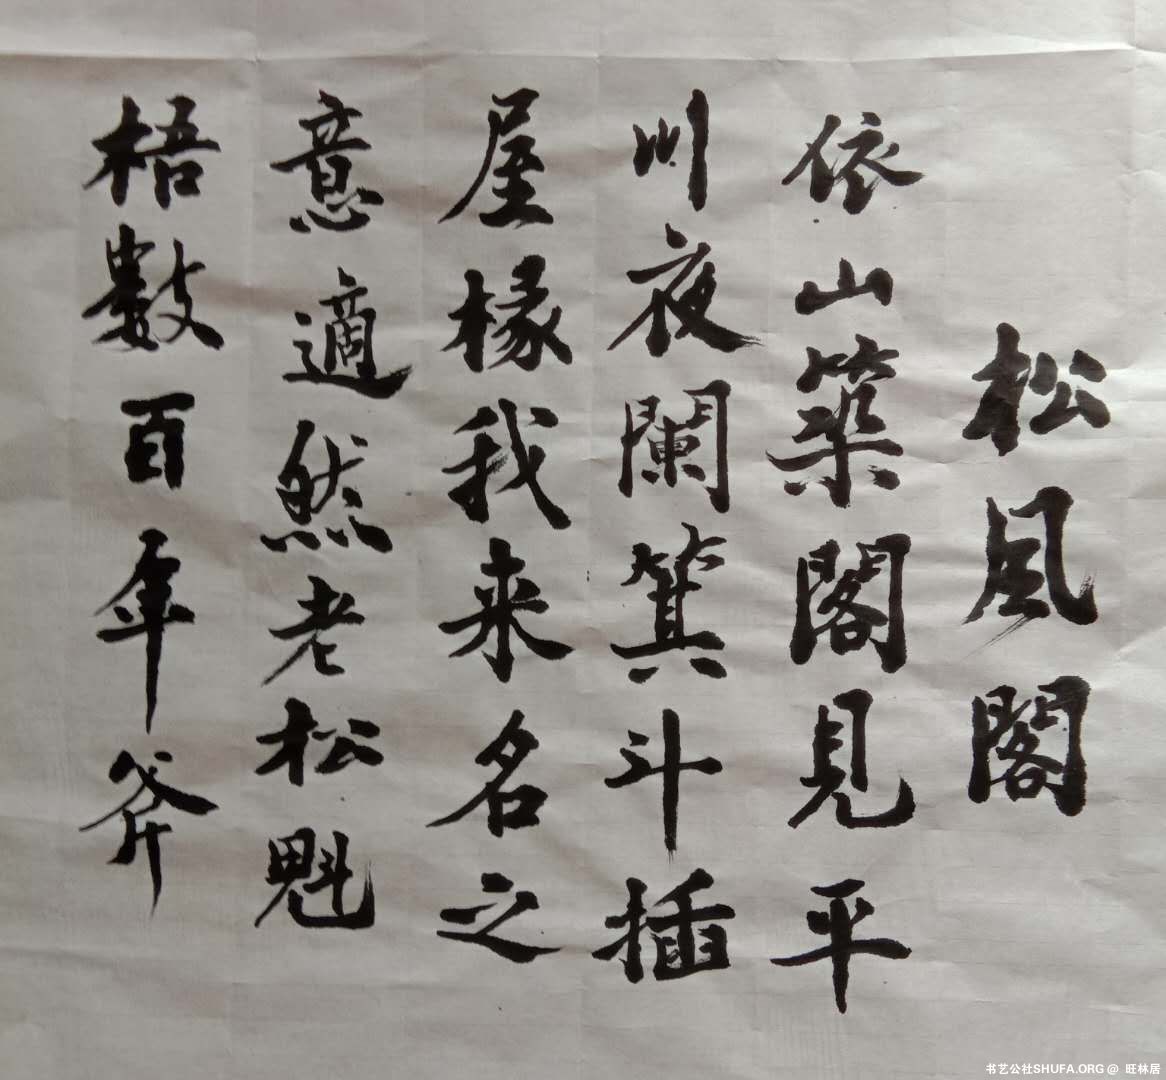 松風閣
依山築閣見平
川夜闌箕斗插
屋椽我来名之
意適然老松魁
梧數百年斧
书艺公社SHUFA.ORG @ 旺林居